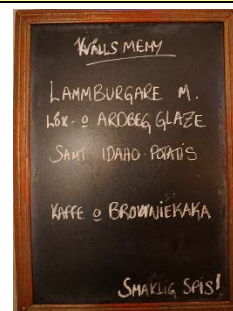 KVÄLLS MENY
LAMMBURGARE M.
LÖK- o ARDBEG GLAZE
SAMT IDAHO-POTATIS
KAFFE o BROWNIEKAKA
SMAKLIG SPIS!